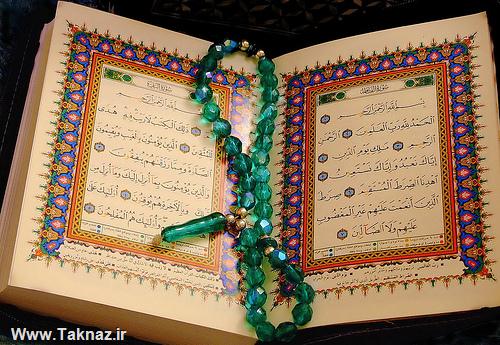 سُورَةُ الفَاتِحَة
بِسْمِ اللَّهِ الرَّحْمَٰنِ الرَّحِيمِ
الْحَمْدُ لِلَّهِ رَبِّ الْعَالَمِينَ الرَّحْمَٰنِ
الرَّحِيمِ مَالِكِ يَوْمِ الدِّينِ
إِيَّاكَ نَعْبُدُ وَإِيَّاكَ نَسْتَعِينُ
اهْدِنَا الصِّرَاطَ الْمُسْتَقِيمَ صِرَاطَ
الَّذِينَ أَنْعَمْتَ عَلَيْهِمْ غَيْرِ الْمَغْضُوبِ
عَلَيْهِمْ وَلَا الضَّالِّينَ
سُورَةُ البَقَرَة
بِسْمِ اللَّهِ الرَّحْمَٰنِ الرَّحِيمِ
ذَٰلِكَ الْكِتَابُ لَا رَيْبَ فِيهِ هُدًى
لِلْمُتَّقِينَ الَّذِينَ يُؤْمِنُونَ بِالْغَيْبِ وَيُقِيمُونَ
الصَّلَاةَ وَمِمَّا رَزَقْنَاهُمْ يُنْفِقُونَ
وَالَّذِينَ يُؤْمِنُونَ بِمَا أُنْزِلَ إِلَيْكَ وَمَا أُنْزِلَ مِنْ
قَبْلِكَ وَبِالْآخِرَةِ هُمْ يُوقِنُونَ أُولَٰئِكَ عَلَىٰ
أُولَٰئِكَ هُمُ الْمُفْلِحُونَ
Www.Taknaz.ir